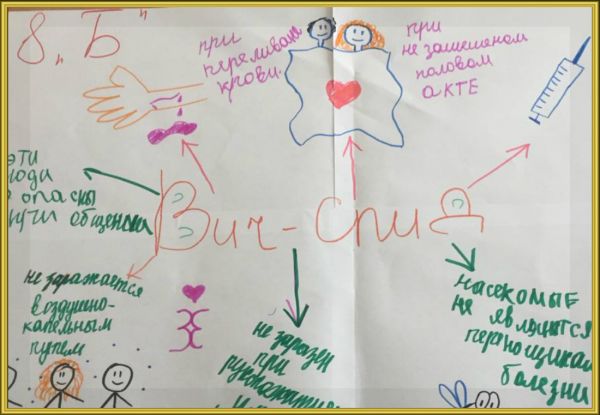 8 "Б"
при
переливании
крови.
при
не защищеном
половом
акте
эти
люди
опасны
при общении
Вич-спид
не заражается
воздушно-
капельным
путем
не заразен
при
рукопожатии
насекомые
не являются
переносщикам
болезни